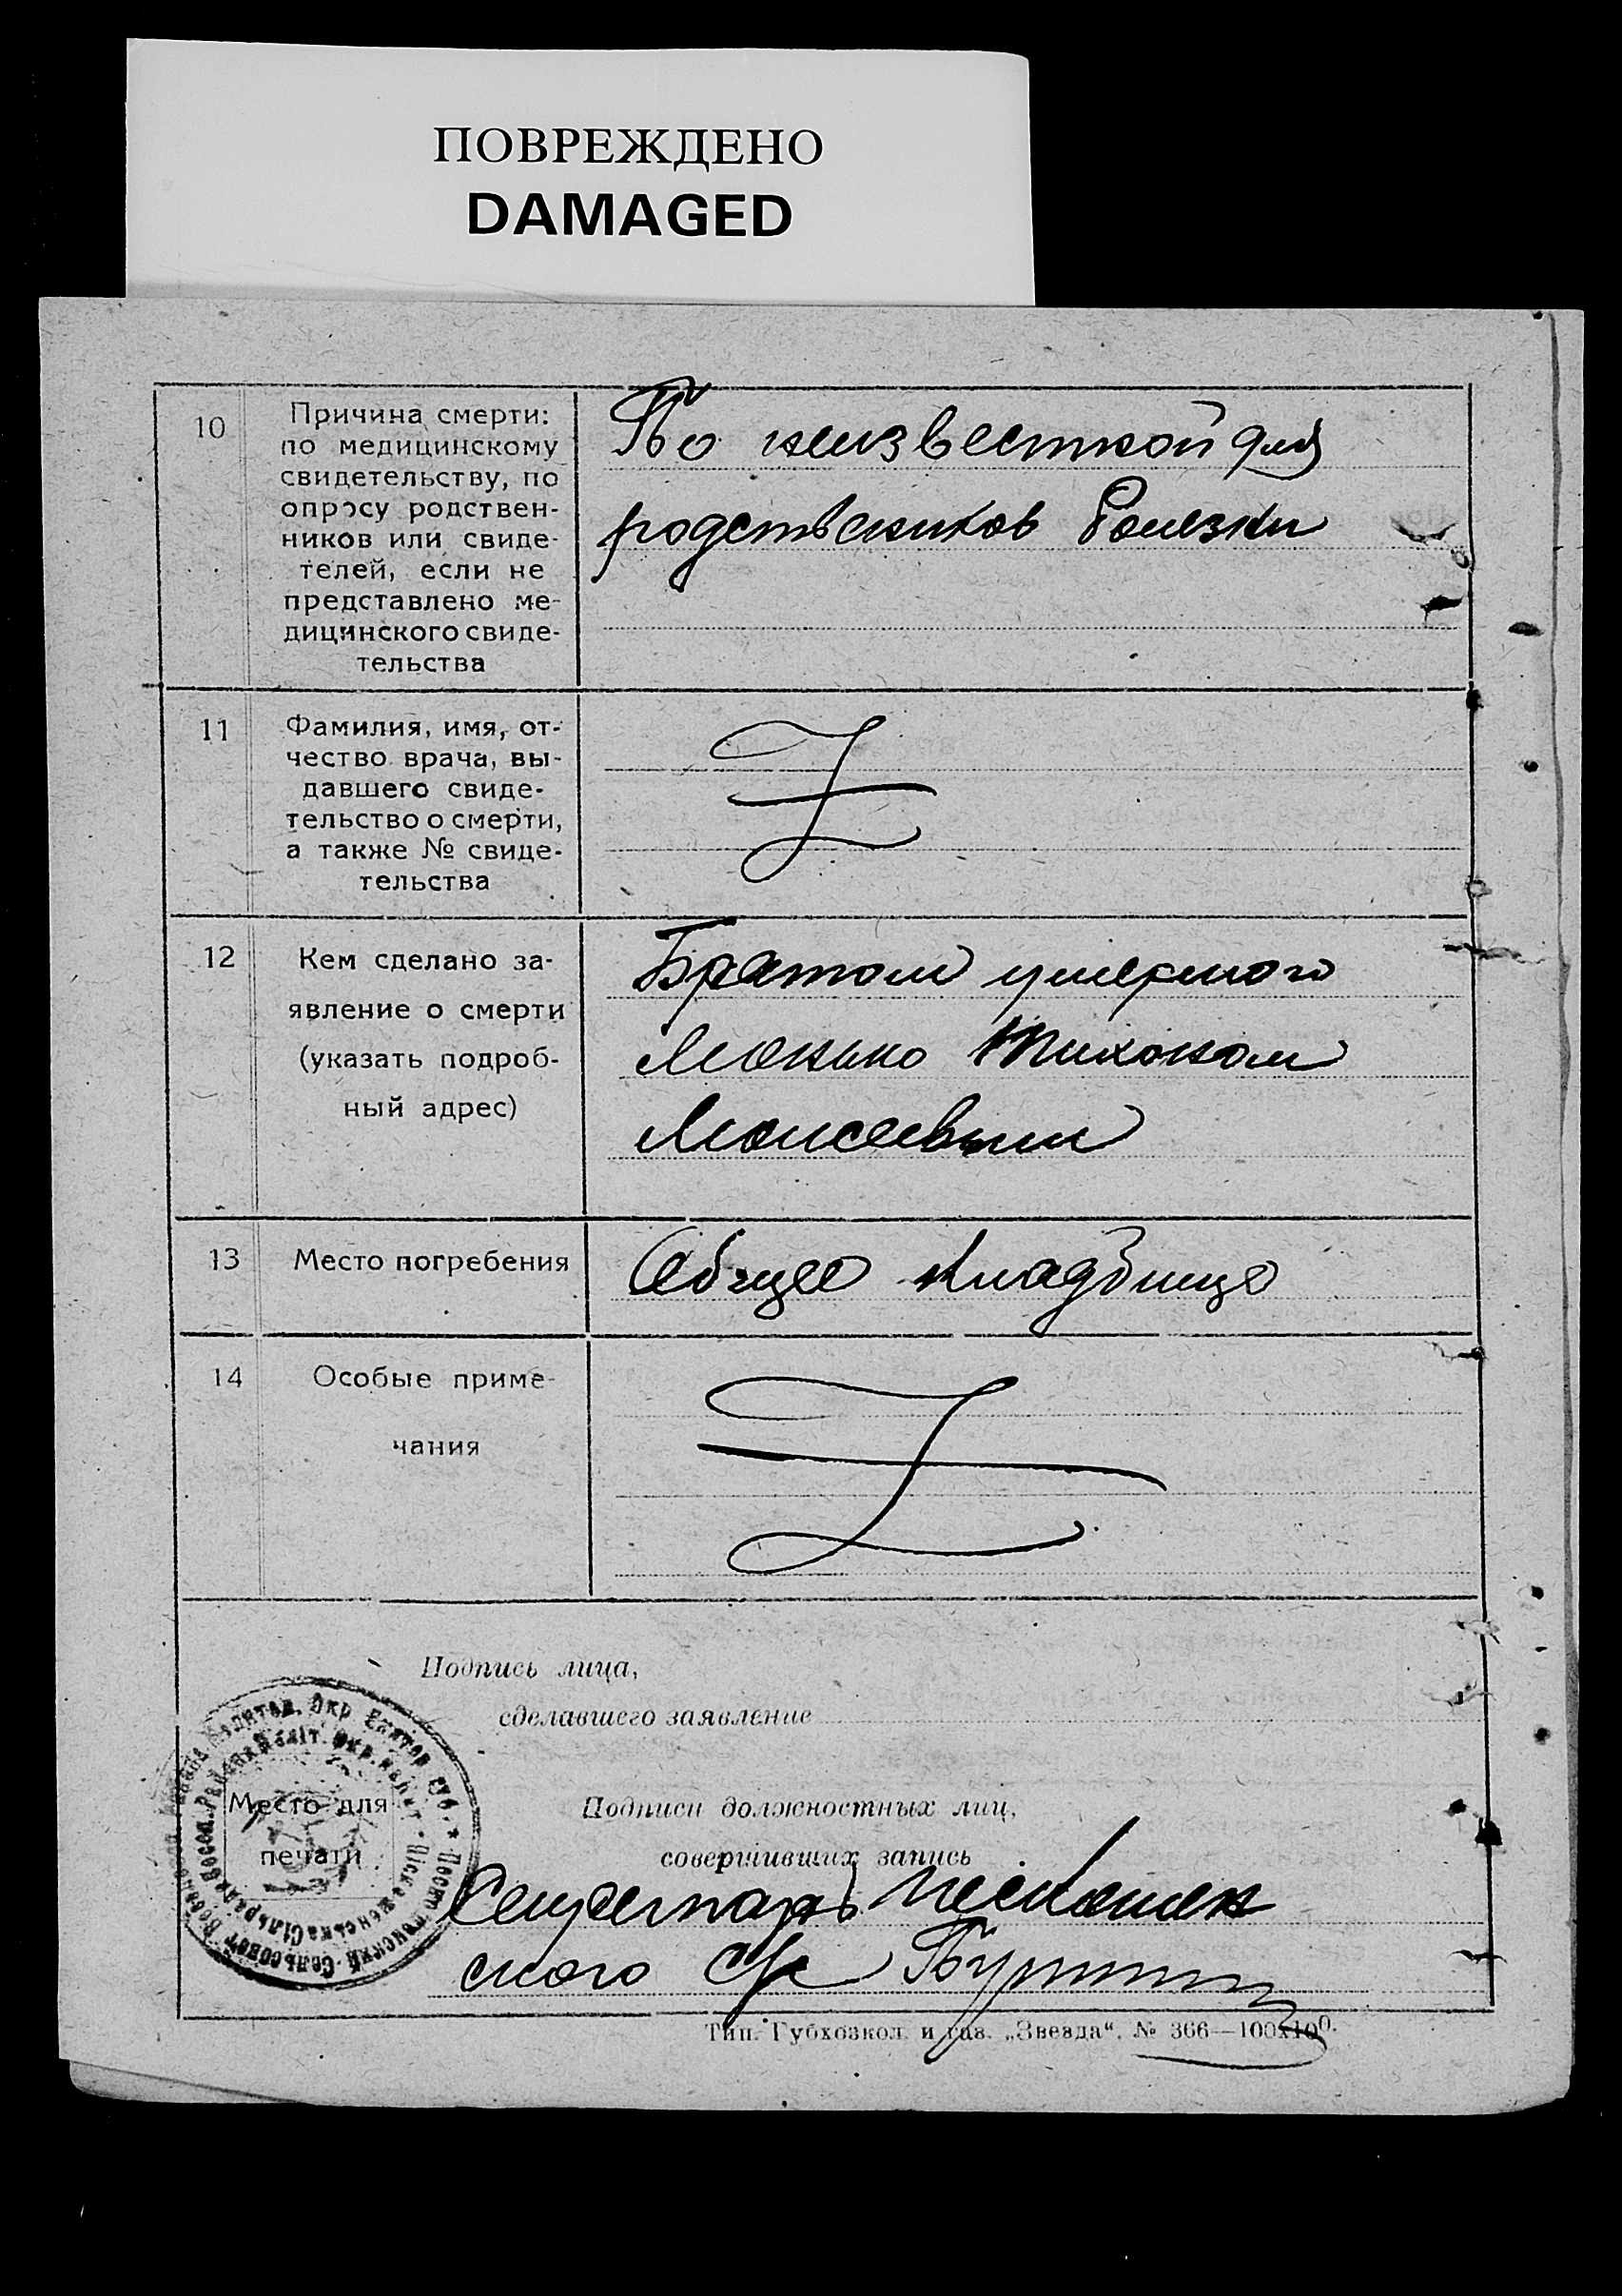 ПОВРЕЖДЕНО
DAMAGED
10
Причина смерти:
по медицинскому
свидетельству, по
опросу родствен-
ников или свиде-
телей, если не
представлено ме-
дицинского свиде-
тельства
По неизвестной для
родственников болезни
11
Фамилия, имя, от-
чество врача, вы-
давшего свиде-
тельство о смерти,
а также № свиде-
тельства
12
Кем сделано за-
явление о смерти
(указать подроб-
ный адрес)
Братом умершого
Тихоном
Моисеевым
13
Место погребения
Общее кладбище
14
Особые приме-
чания
Подпись лица,
сделавшего заявление
Место для
печати
Подписи должностных лиц,
совершивших запись
Секретарь
ского с/с
Тип. Губхозкол. и газ. „Звезда“. № 366—100х100.